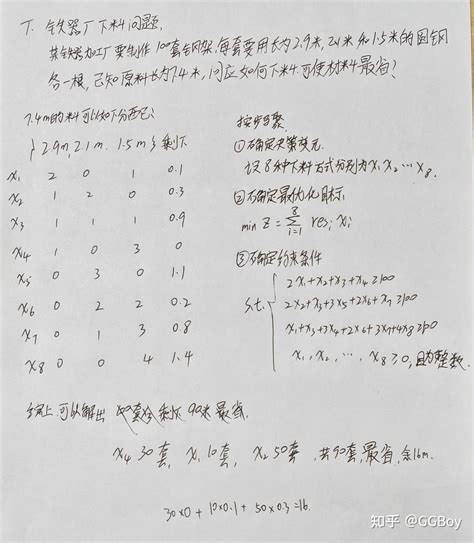 1. 铁器厂下料问题.
某铁器加工厂要制作100套钢架,每套要用长为2.9米, 2.1米和1.5米的圆钢
各一根, 已知原料长为7.4米, 问应如何下料, 可使材料最省?
7.4m的料可以如下分配:
{ 2.9m, 2.1m. 1.5m } 剩下
x1 2 0 1 0.1
x2 1 2 0 0.3
x3 1 1 1 0.9
x4 1 0 3 0
x5 0 3 0 1.1
x6 0 2 2 0.2
x7 0 1 3 0.8
x8 0 0 4 1.4
按步骤.
①确定决策变元.
设8种下料方式分别为x1 x2 … x8.
②确定最优化目标.
min Z = Σ resi xi
i=1
8
③确定约束条件
s.t. { 2x1+x2+x3+x4≥100
2x2+x3+3x5+2x6+x7≥100
x1+x3+3x4+2x6+3x7+4x8≥100
x1, x2, …, x8≥0, 且为整数.
综上可以解出 剩下 90 最省.
x4 30套, x1 10套, x2 50套, 共90套, 最省, 余16m.
30×0 + 10×0.1 + 50×0.3 = 16.
知乎 @GGBoy